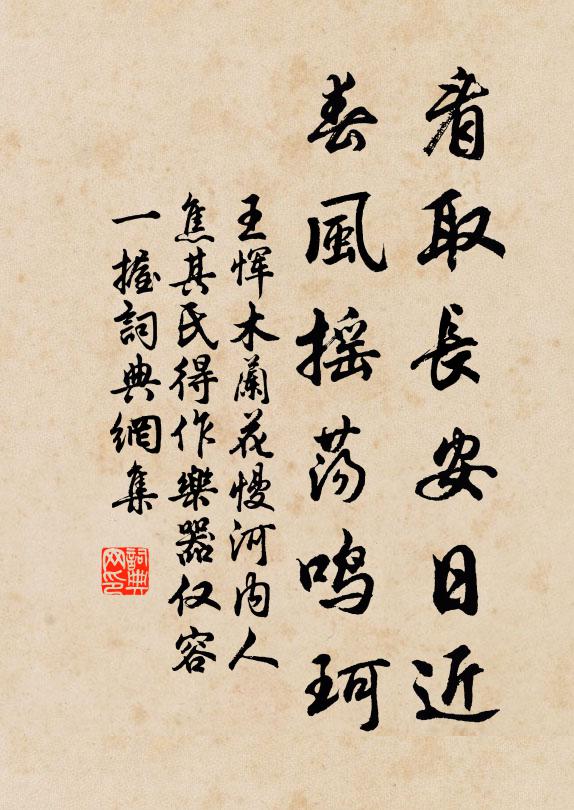 看取長安日近
春風摇荡鳴珂
王恽木蘭花慢河内人
焦其民得作樂器仅容
一握詞典網集
詞典网印